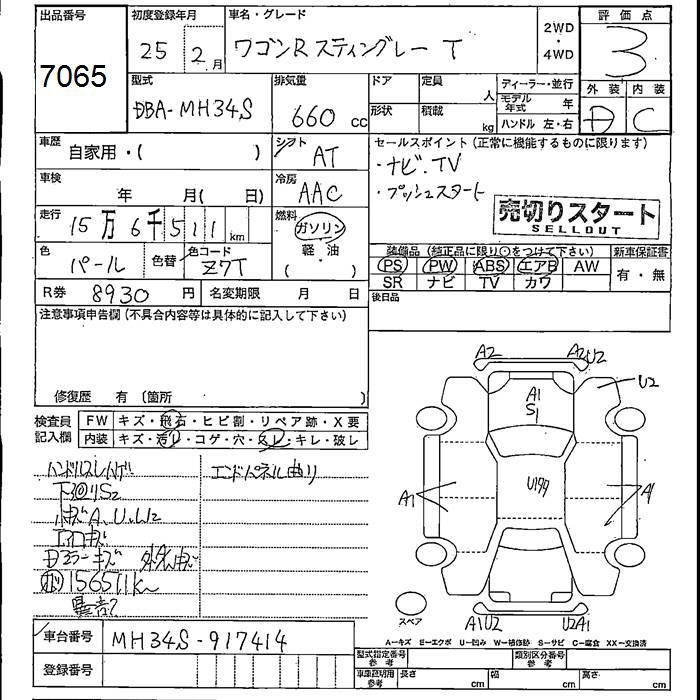 出品番号
7065
初度登録年月
25 2月
車名・グレード
ワゴンR スティングレー T
2WD
・
4WD
評価点
3
外装 内装
D C
型式
DBA-MH34S
排気量
660 cc
ドア
定員
人
形状
積載
kg
ディーラー・並行
モデル年式 年
ハンドル 左・右
車歴
自家用・( )
シフト
AT
セールスポイント(正常に機能するものに限ります)
・ナビ.TV
・プッシュスタート
車検
年 月( 日)
冷房
AAC
売切りスタート
SELLOUT
走行
15万6千511km
燃料
ガソリン
軽・油
( )
色
パール
色替
色コード
Z7T
装備品(純正品に限り○をつけて下さい)
PS PW ABS エアB AW
SR ナビ TV カワ
新車保証書
有・無
R券 8930円
名変期限 月 日
後日品
注意事項申告欄(不具合内容等は具体的に記入して下さい)
修復歴 有 〔箇所 〕
検査員記入欄
FW キズ・飛石・ヒビ割・リペア跡・X要
内装 キズ・汚レ・コゲ・穴・スレ・キレ・破レ
エンドパネル曲り
156511k
異音?
A2 A2U2
U2
A1
S1
A1
U199
A1
A1U2 U2A1
スペア
A-キズ E-エクボ U-凹み W-補修跡 S-サビ C-腐食 XX-交換済
車台番号
MH34S-917414
登録番号
型式指定番号 参考
類別区分番号 参考
車庫証明用 参考
長さ cm
幅 cm
高さ cm